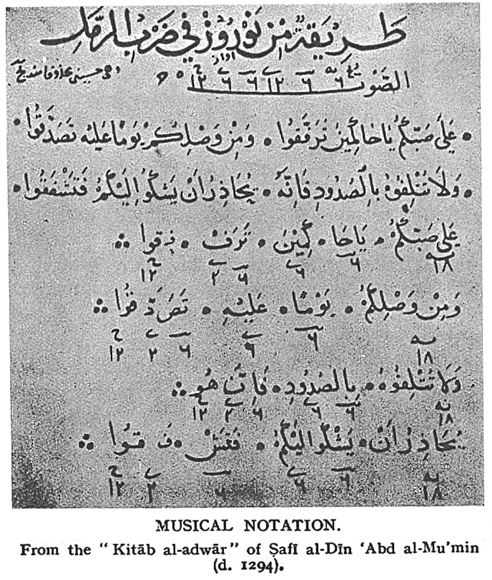 طريقة من نوروز في ضرب الرمل
الصوت
على صبكم يا حاكمين ترفقوا • ومن وصلكم يوما عليه تصدقوا •
ولا تتلفوه بالصدود فإنه • يحاذر أن يشكوا إليكم فتشفقوا •
على صبكم • يا حا • كمين • ترف • فقوا
١٨ ٦ ٦ ٦ ٢ ١٢
ومن وصلكم • يوما • عليه • تصد دقوا
١٨ ٦ ٦ ٦ ٢ ١٢
ولا تتلفوه • بالصدود • فإن هو
١٨ ٦ ٦ ٦ ٢ ١٢
يحاذر أن • يشكوا إليكم • فتش ف قوا
١٨ ٦ ٦ ٢ ١٢
MUSICAL NOTATION.
From the "Kitāb al-adwār" of Ṣafī al-Dīn ‘Abd al-Mu’min
(d. 1294).